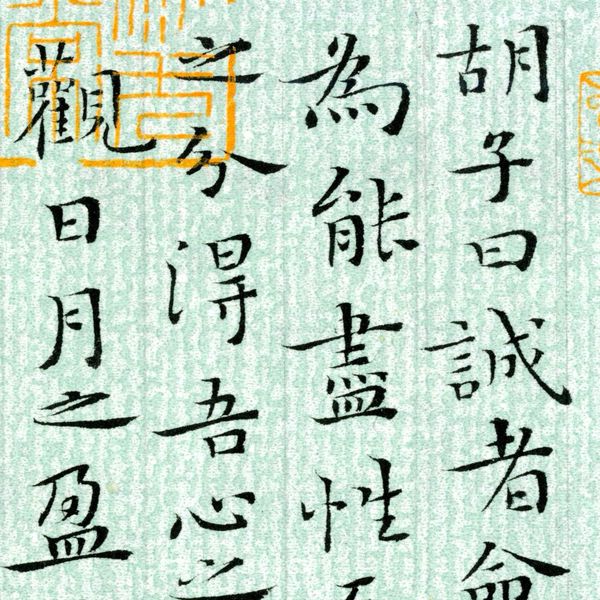 胡子曰誠者命
為能盡性
之分得吾心之
觀日月之盈